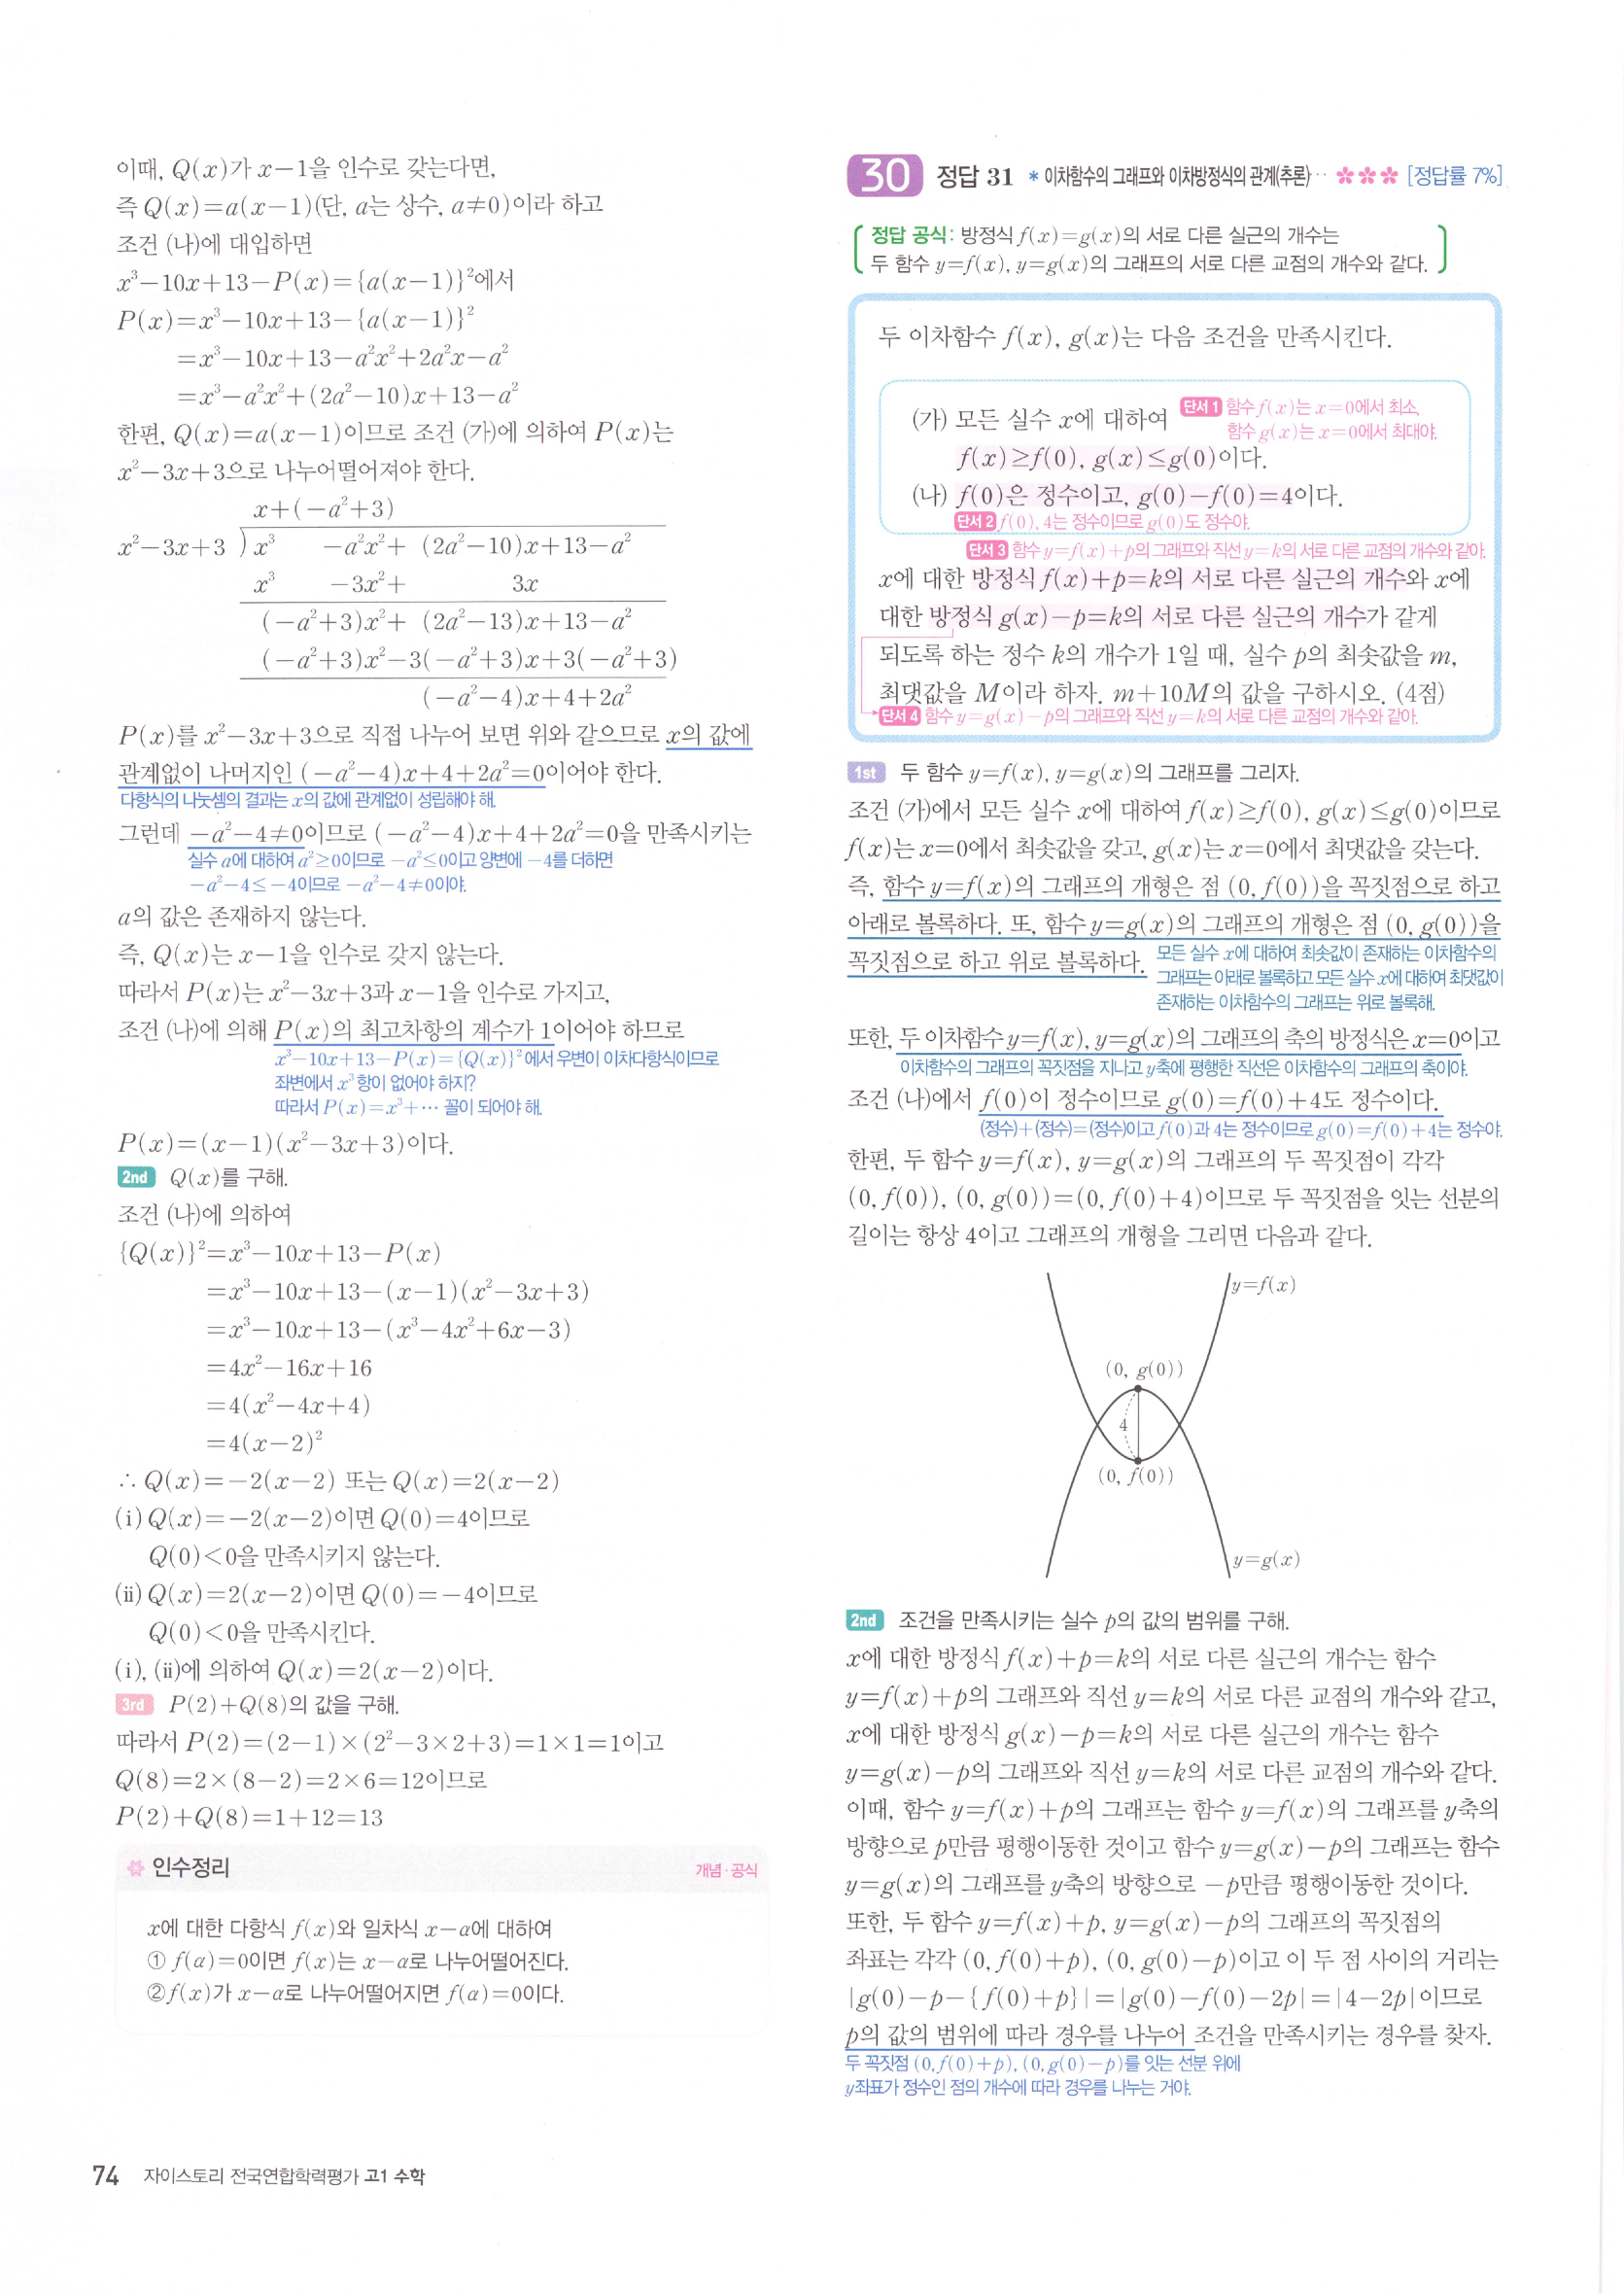 이때, Q(x)가 x-1을 인수로 갖는다면,
즉 Q(x)=a(x-1)(단, a는 상수, a≠0)이라 하고
조건 (나)에 대입하면
x³-10x+13-P(x)={a(x-1)}²에서
P(x)=x³-10x+13-{a(x-1)}²
=x³-10x+13-a²x²+2a²x-a²
=x³-a²x²+(2a²-10)x+13-a²
한편, Q(x)=a(x-1)이므로 조건 (가)에 의하여 P(x)는
x²-3x+3으로 나누어떨어져야 한다.
x+(-a²+3)
x²-3x+3 ) x³ -a²x²+ (2a²-10)x+13-a²
x³ -3x²+ 3x
(-a²+3)x²+ (2a²-13)x+13-a²
(-a²+3)x²-3(-a²+3)x+3(-a²+3)
(-a²-4)x+4+2a²
P(x)를 x²-3x+3으로 직접 나누어 보면 위와 같으므로 x의 값에
관계없이 나머지인 (-a²-4)x+4+2a²=0이어야 한다.
다항식의 나눗셈의 결과는 x의 값에 관계없이 성립해야 해.
그런데 -a²-4≠0이므로 (-a²-4)x+4+2a²=0을 만족시키는
실수 a에 대하여 a²≥0이므로 -a²≤0이고 양변에 -4를 더하면
-a²-4≤-4이므로 -a²-4≠0이야.
a의 값은 존재하지 않는다.
즉, Q(x)는 x-1을 인수로 갖지 않는다.
따라서 P(x)는 x²-3x+3과 x-1을 인수로 가지고,
조건 (나)에 의해 P(x)의 최고차항의 계수가 1이어야 하므로
x³-10x+13-P(x)={Q(x)}²에서 우변이 이차다항식이므로
좌변에서 x³항이 없어야 하지?
따라서 P(x)=x³+⋯ 꼴이 되어야 해.
P(x)=(x-1)(x²-3x+3)이다.
2nd Q(x)를 구해.
조건 (나)에 의하여
{Q(x)}²=x³-10x+13-P(x)
=x³-10x+13-(x-1)(x²-3x+3)
=x³-10x+13-(x³-4x²+6x-3)
=4x²-16x+16
=4(x²-4x+4)
=4(x-2)²
∴ Q(x)=-2(x-2) 또는 Q(x)=2(x-2)
(i) Q(x)=-2(x-2)이면 Q(0)=4이므로
Q(0)<0을 만족시키지 않는다.
(ii) Q(x)=2(x-2)이면 Q(0)=-4이므로
Q(0)<0을 만족시킨다.
(i), (ii)에 의하여 Q(x)=2(x-2)이다.
3rd P(2)+Q(8)의 값을 구해.
따라서 P(2)=(2-1)×(2²-3×2+3)=1×1=1이고
Q(8)=2×(8-2)=2×6=12이므로
P(2)+Q(8)=1+12=13
인수정리 개념·공식
x에 대한 다항식 f(x)와 일차식 x-α에 대하여
① f(α)=0이면 f(x)는 x-α로 나누어떨어진다.
② f(x)가 x-α로 나누어떨어지면 f(α)=0이다.
74 자이스토리 전국연합학력평가 고1 수학
30 정답 31 *이차함수의 그래프와 이차방정식의 관계(추론)⋯ [정답률 7%]
정답 공식: 방정식 f(x)=g(x)의 서로 다른 실근의 개수는
두 함수 y=f(x), y=g(x)의 그래프의 서로 다른 교점의 개수와 같다.
두 이차함수 f(x), g(x)는 다음 조건을 만족시킨다.
(가) 모든 실수 x에 대하여 단서1 함수 f(x)는 x=0에서 최소,
함수 g(x)는 x=0에서 최대야.
f(x)≥f(0), g(x)≤g(0)이다.
(나) f(0)은 정수이고, g(0)-f(0)=4이다.
단서2 f(0), 4는 정수이므로 g(0)도 정수야.
단서3 함수 y=f(x)+p의 그래프와 직선 y=k의 서로 다른 교점의 개수와 같아.
x에 대한 방정식 f(x)+p=k의 서로 다른 실근의 개수와 x에
대한 방정식 g(x)-p=k의 서로 다른 실근의 개수가 같게
되도록 하는 정수 k의 개수가 1일 때, 실수 p의 최솟값을 m,
최댓값을 M이라 하자. m+10M의 값을 구하시오. (4점)
단서4 함수 y=g(x)-p의 그래프와 직선 y=k의 서로 다른 교점의 개수와 같아.
1st 두 함수 y=f(x), y=g(x)의 그래프를 그리자.
조건 (가)에서 모든 실수 x에 대하여 f(x)≥f(0), g(x)≤g(0)이므로
f(x)는 x=0에서 최솟값을 갖고, g(x)는 x=0에서 최댓값을 갖는다.
즉, 함수 y=f(x)의 그래프의 개형은 점 (0, f(0))을 꼭짓점으로 하고
아래로 볼록하다. 또, 함수 y=g(x)의 그래프의 개형은 점 (0, g(0))을
꼭짓점으로 하고 위로 볼록하다. 모든 실수 x에 대하여 최솟값이 존재하는 이차함수의
그래프는 아래로 볼록하고 모든 실수 x에 대하여 최댓값이
존재하는 이차함수의 그래프는 위로 볼록해.
또한, 두 이차함수 y=f(x), y=g(x)의 그래프의 축의 방정식은 x=0이고
이차함수의 그래프의 꼭짓점을 지나고 y축에 평행한 직선은 이차함수의 그래프의 축이야.
조건 (나)에서 f(0)이 정수이므로 g(0)=f(0)+4도 정수이다.
(정수)+(정수)=(정수)이고 f(0)과 4는 정수이므로 g(0)=f(0)+4는 정수야.
한편, 두 함수 y=f(x), y=g(x)의 그래프의 두 꼭짓점이 각각
(0, f(0)), (0, g(0))=(0, f(0)+4)이므로 두 꼭짓점을 잇는 선분의
길이는 항상 4이고 그래프의 개형을 그리면 다음과 같다.
y=f(x)
(0, g(0))
4
(0, f(0))
y=g(x)
2nd 조건을 만족시키는 실수 p의 값의 범위를 구해.
x에 대한 방정식 f(x)+p=k의 서로 다른 실근의 개수는 함수
y=f(x)+p의 그래프와 직선 y=k의 서로 다른 교점의 개수와 같고,
x에 대한 방정식 g(x)-p=k의 서로 다른 실근의 개수는 함수
y=g(x)-p의 그래프와 직선 y=k의 서로 다른 교점의 개수와 같다.
이때, 함수 y=f(x)+p의 그래프는 함수 y=f(x)의 그래프를 y축의
방향으로 p만큼 평행이동한 것이고 함수 y=g(x)-p의 그래프는 함수
y=g(x)의 그래프를 y축의 방향으로 -p만큼 평행이동한 것이다.
또한, 두 함수 y=f(x)+p, y=g(x)-p의 그래프의 꼭짓점의
좌표는 각각 (0, f(0)+p), (0, g(0)-p)이고 이 두 점 사이의 거리는
|g(0)-p-{f(0)+p}|=|g(0)-f(0)-2p|=|4-2p|이므로
p의 값의 범위에 따라 경우를 나누어 조건을 만족시키는 경우를 찾자.
두 꼭짓점 (0, f(0)+p), (0, g(0)-p)를 잇는 선분 위에
y좌표가 정수인 점의 개수에 따라 경우를 나누는 거야.